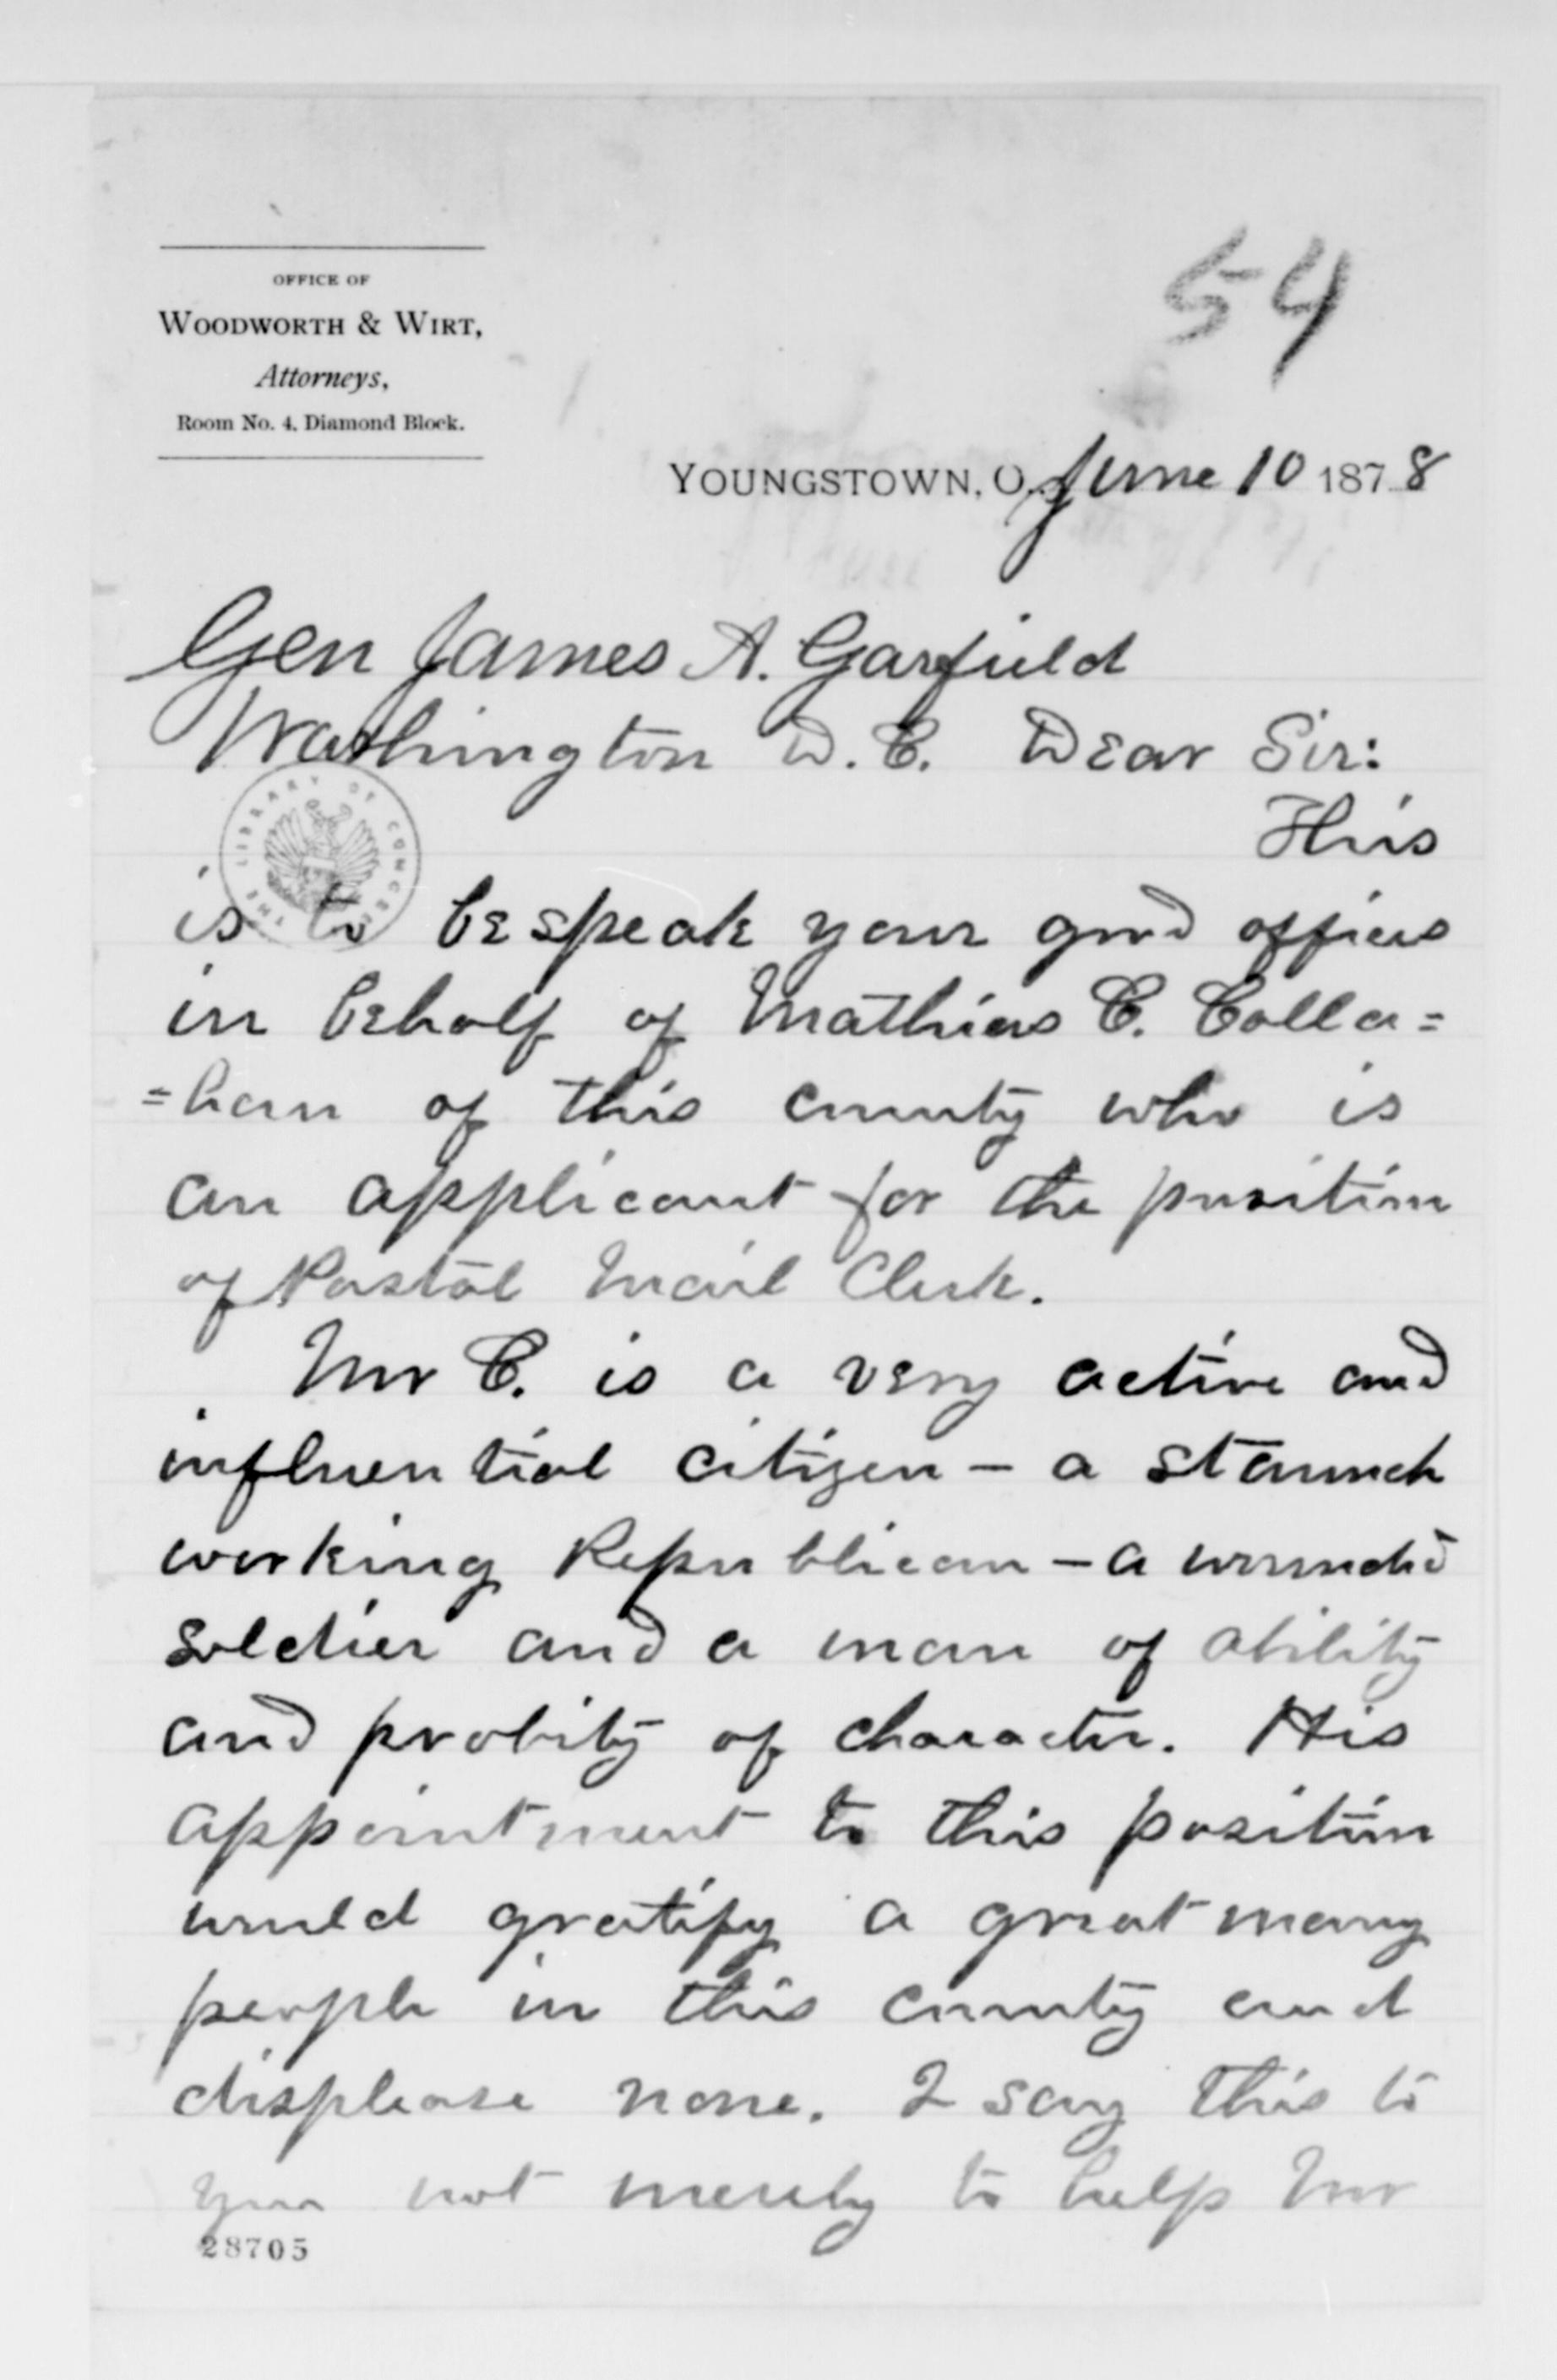 54
OFFICE OF
WOODWORTH & WIRT,
Attorneys,
Room No. 4, Diamond Block.
YOUNGSTOWN, O., June 10 1878
Gen James A. Garfield
Washington D.C. Dear Sir:
This
THE LIBRARY OF CONGRESS
is to bespeak your good offices
in behalf of Mathias C. Calla=
=han of this county who is
an applicant for the position
of Postal Mail Clerk.
Mr C. is a very active and
influential citizen – a staunch
working Republican – a wounded
soldier and a man of ability
and probity of character. His
appointment to this position
would gratify a great many
people in this county and
displease none. I say this to
you not merely to help Mr
28705